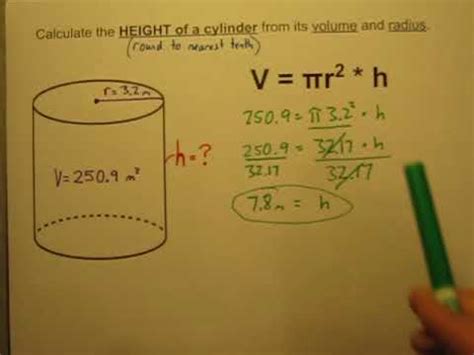 Calculate the HEIGHT of a cylinder from its volume and radius.
(round to nearest tenth)
V = πr² * h
r=3.2m
250.9 = π3.2² · h
h=?
V=250.9 m²
250.9 = 32.17 · h
32.17 32.17
7.8m = h